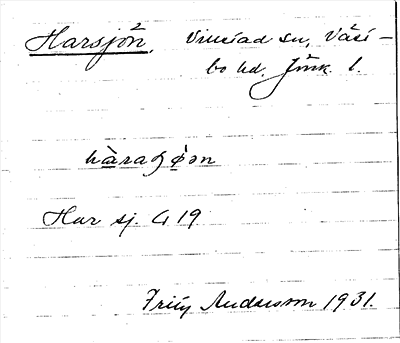 Harsjön. Villstad sn, Västbo hd. Jönk. l.
hàraʃøən
Har sj. G 19
Frith Andersson 1931.